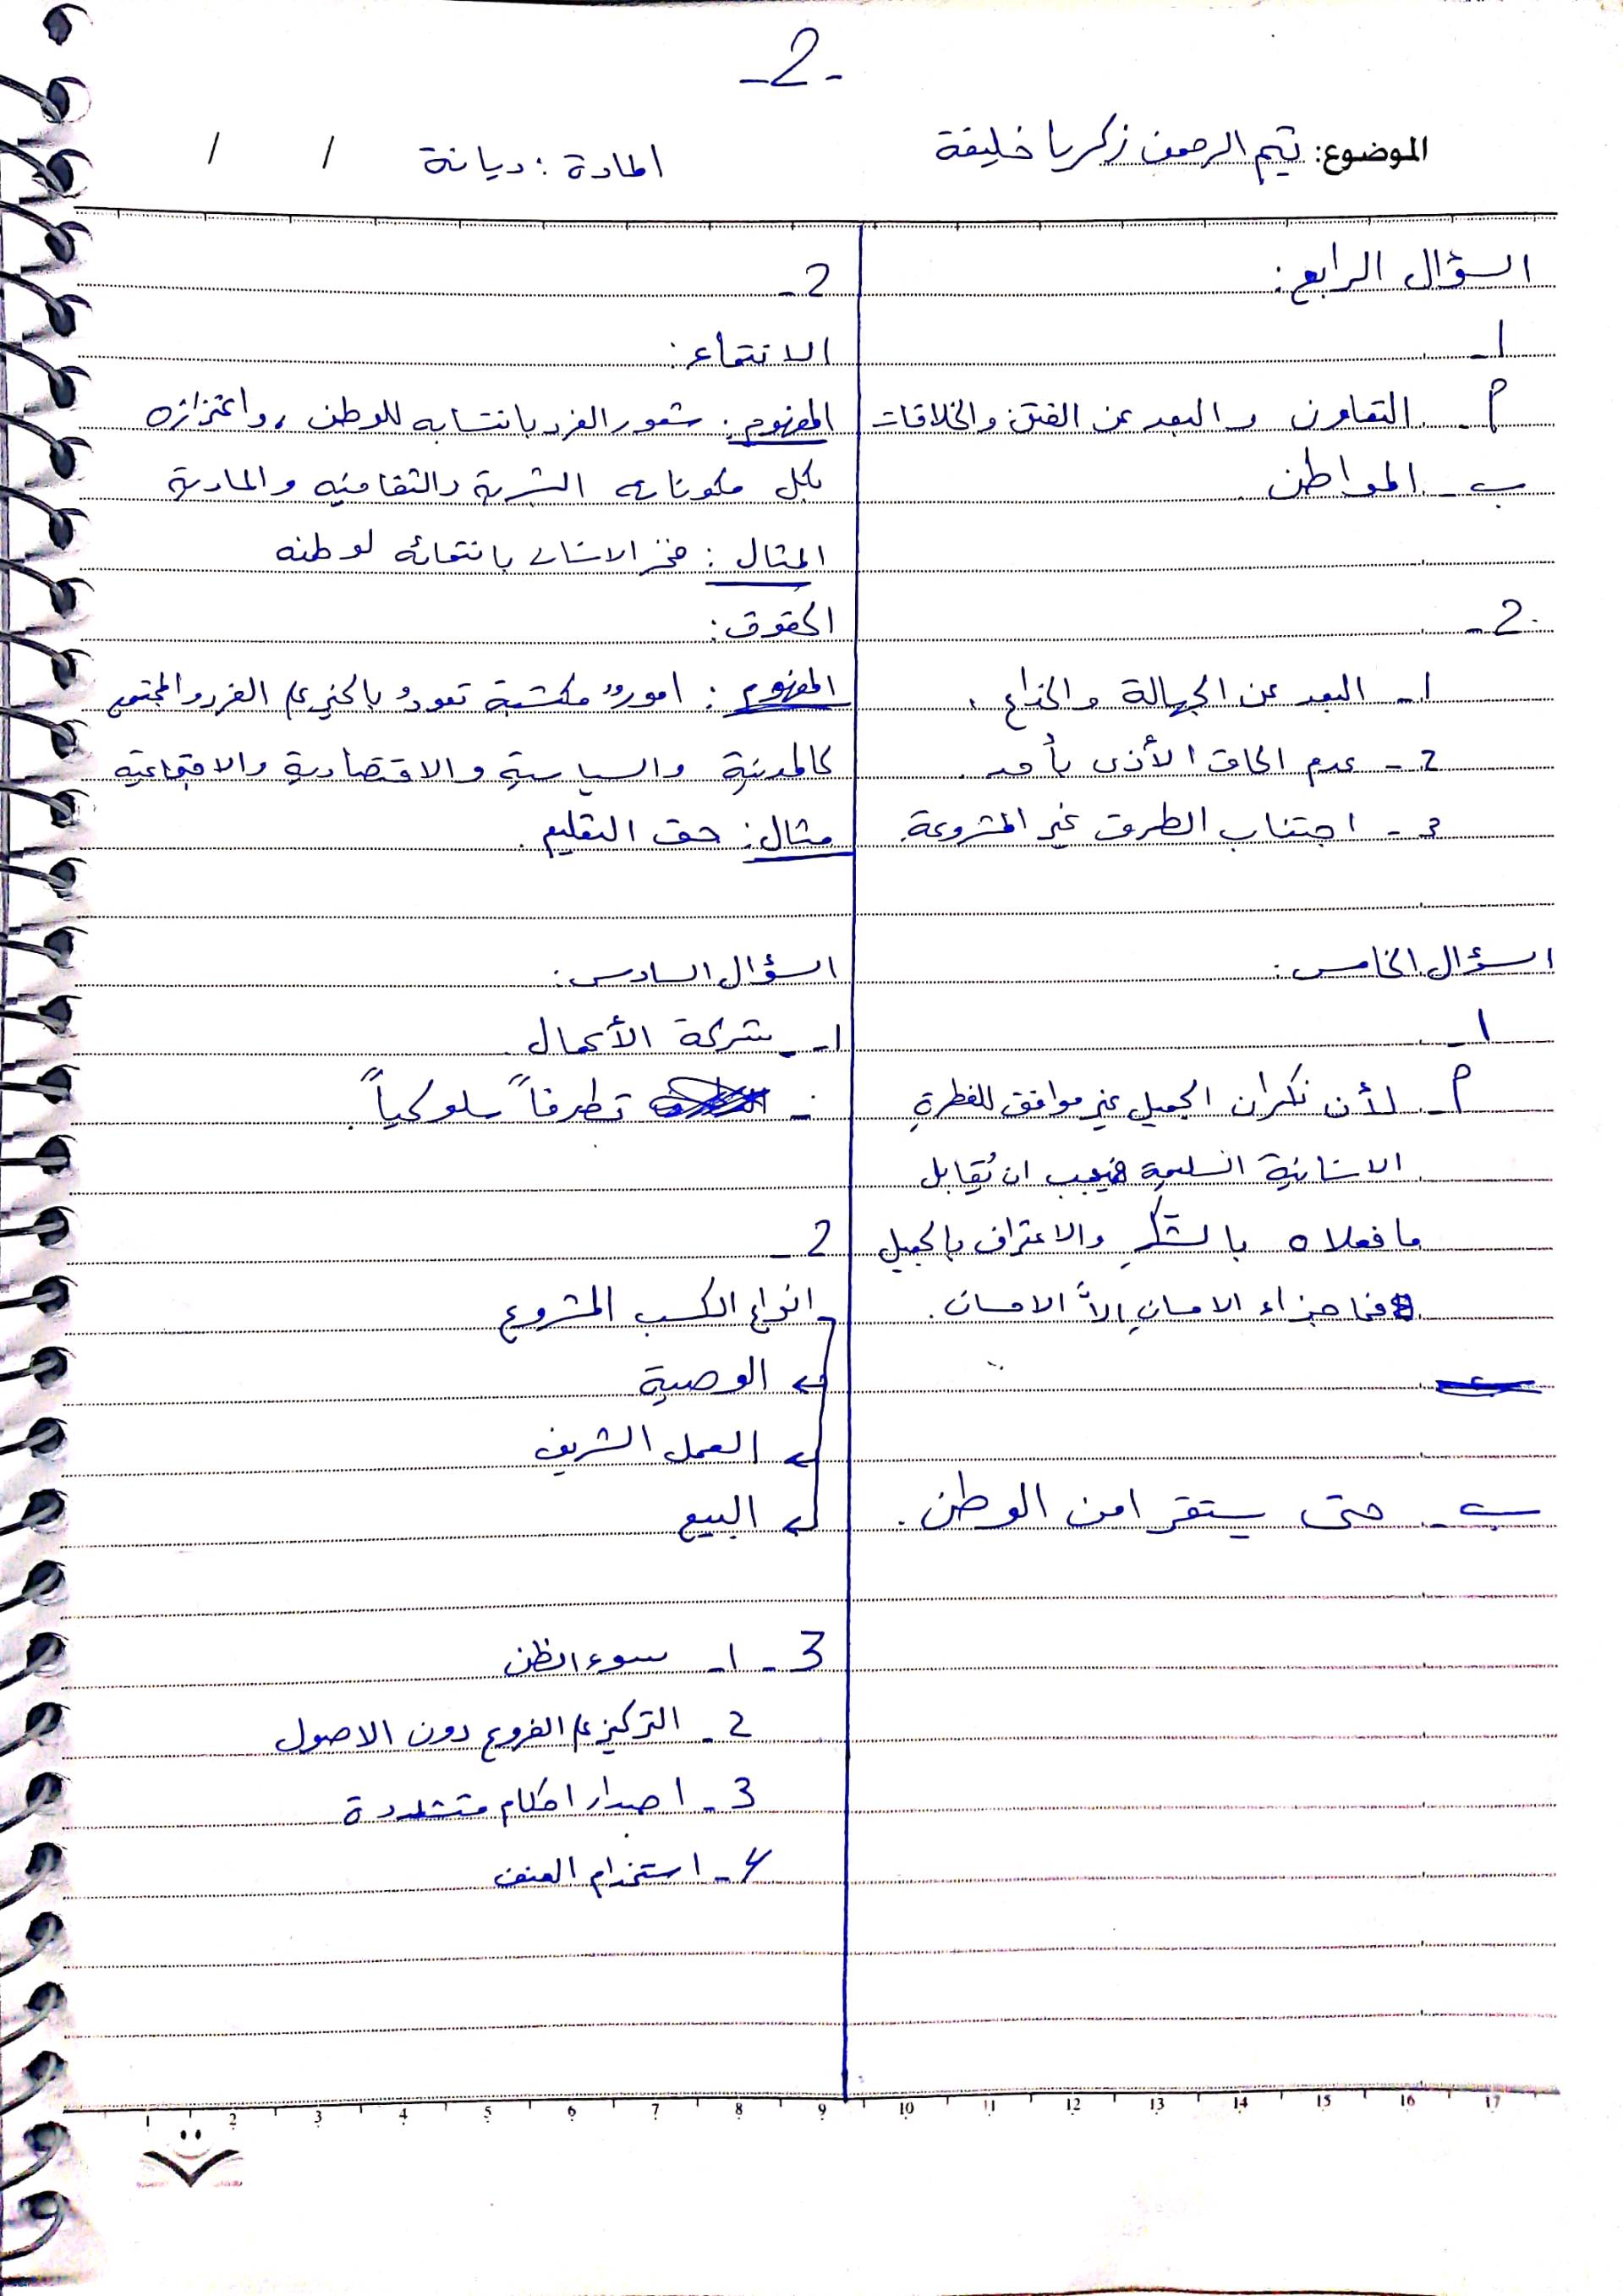 -2-
الموضوع: تيم الرحمن زكريا خليفة
المادة : ديانة / /
السؤال الرابع:
1-
أ- التعاون والبعد عن الفتن والخلافات
ب- المواطن
2-
1- البعد عن الجهالة والخداع.
2- عدم الحاق الأذى بأحد.
3- اجتناب الطرق غير المشروعة.
السؤال الخامس:
1-
أ- لأن نكران الجميل غير موافق للفطرة
الانسانية السليمة فيجب ان يُقابل
ما فعلاه بالشكر والاعتراف بالجميل
فما جزاء الاحسانِ إلاَّ الاحسان.
ب- حتى يستقر امن الوطن.
2-
الانتماء:
المفهوم: شعور الفرد بانتسابه للوطن، واعتزازه
بكل مكوناته البشرية والثقافيه والمادية
المثال: فخر الانسان بانتمائه لوطنه
الحقوق:
المفهوم: امورٌ مكتسبة تعودُ بالخير على الفرد والمجتمع
كالمدنية والسياسية والاقتصادية والاجتماعية
مثال: حق التعليم.
السؤال السادس:
1- شركة الأعمال.
- تطرفاً سلوكياً.
2-
انواع الكسب المشروع
الوصية
العمل الشريف
البيع
3- 1- سوء الظن
2- التركيز على الفروع دون الاصول
3- اصدار احكام متشددة
4- استخدام العنف
1 2 3 4 5 6 7 8 9 10 11 12 13 14 15 16 17